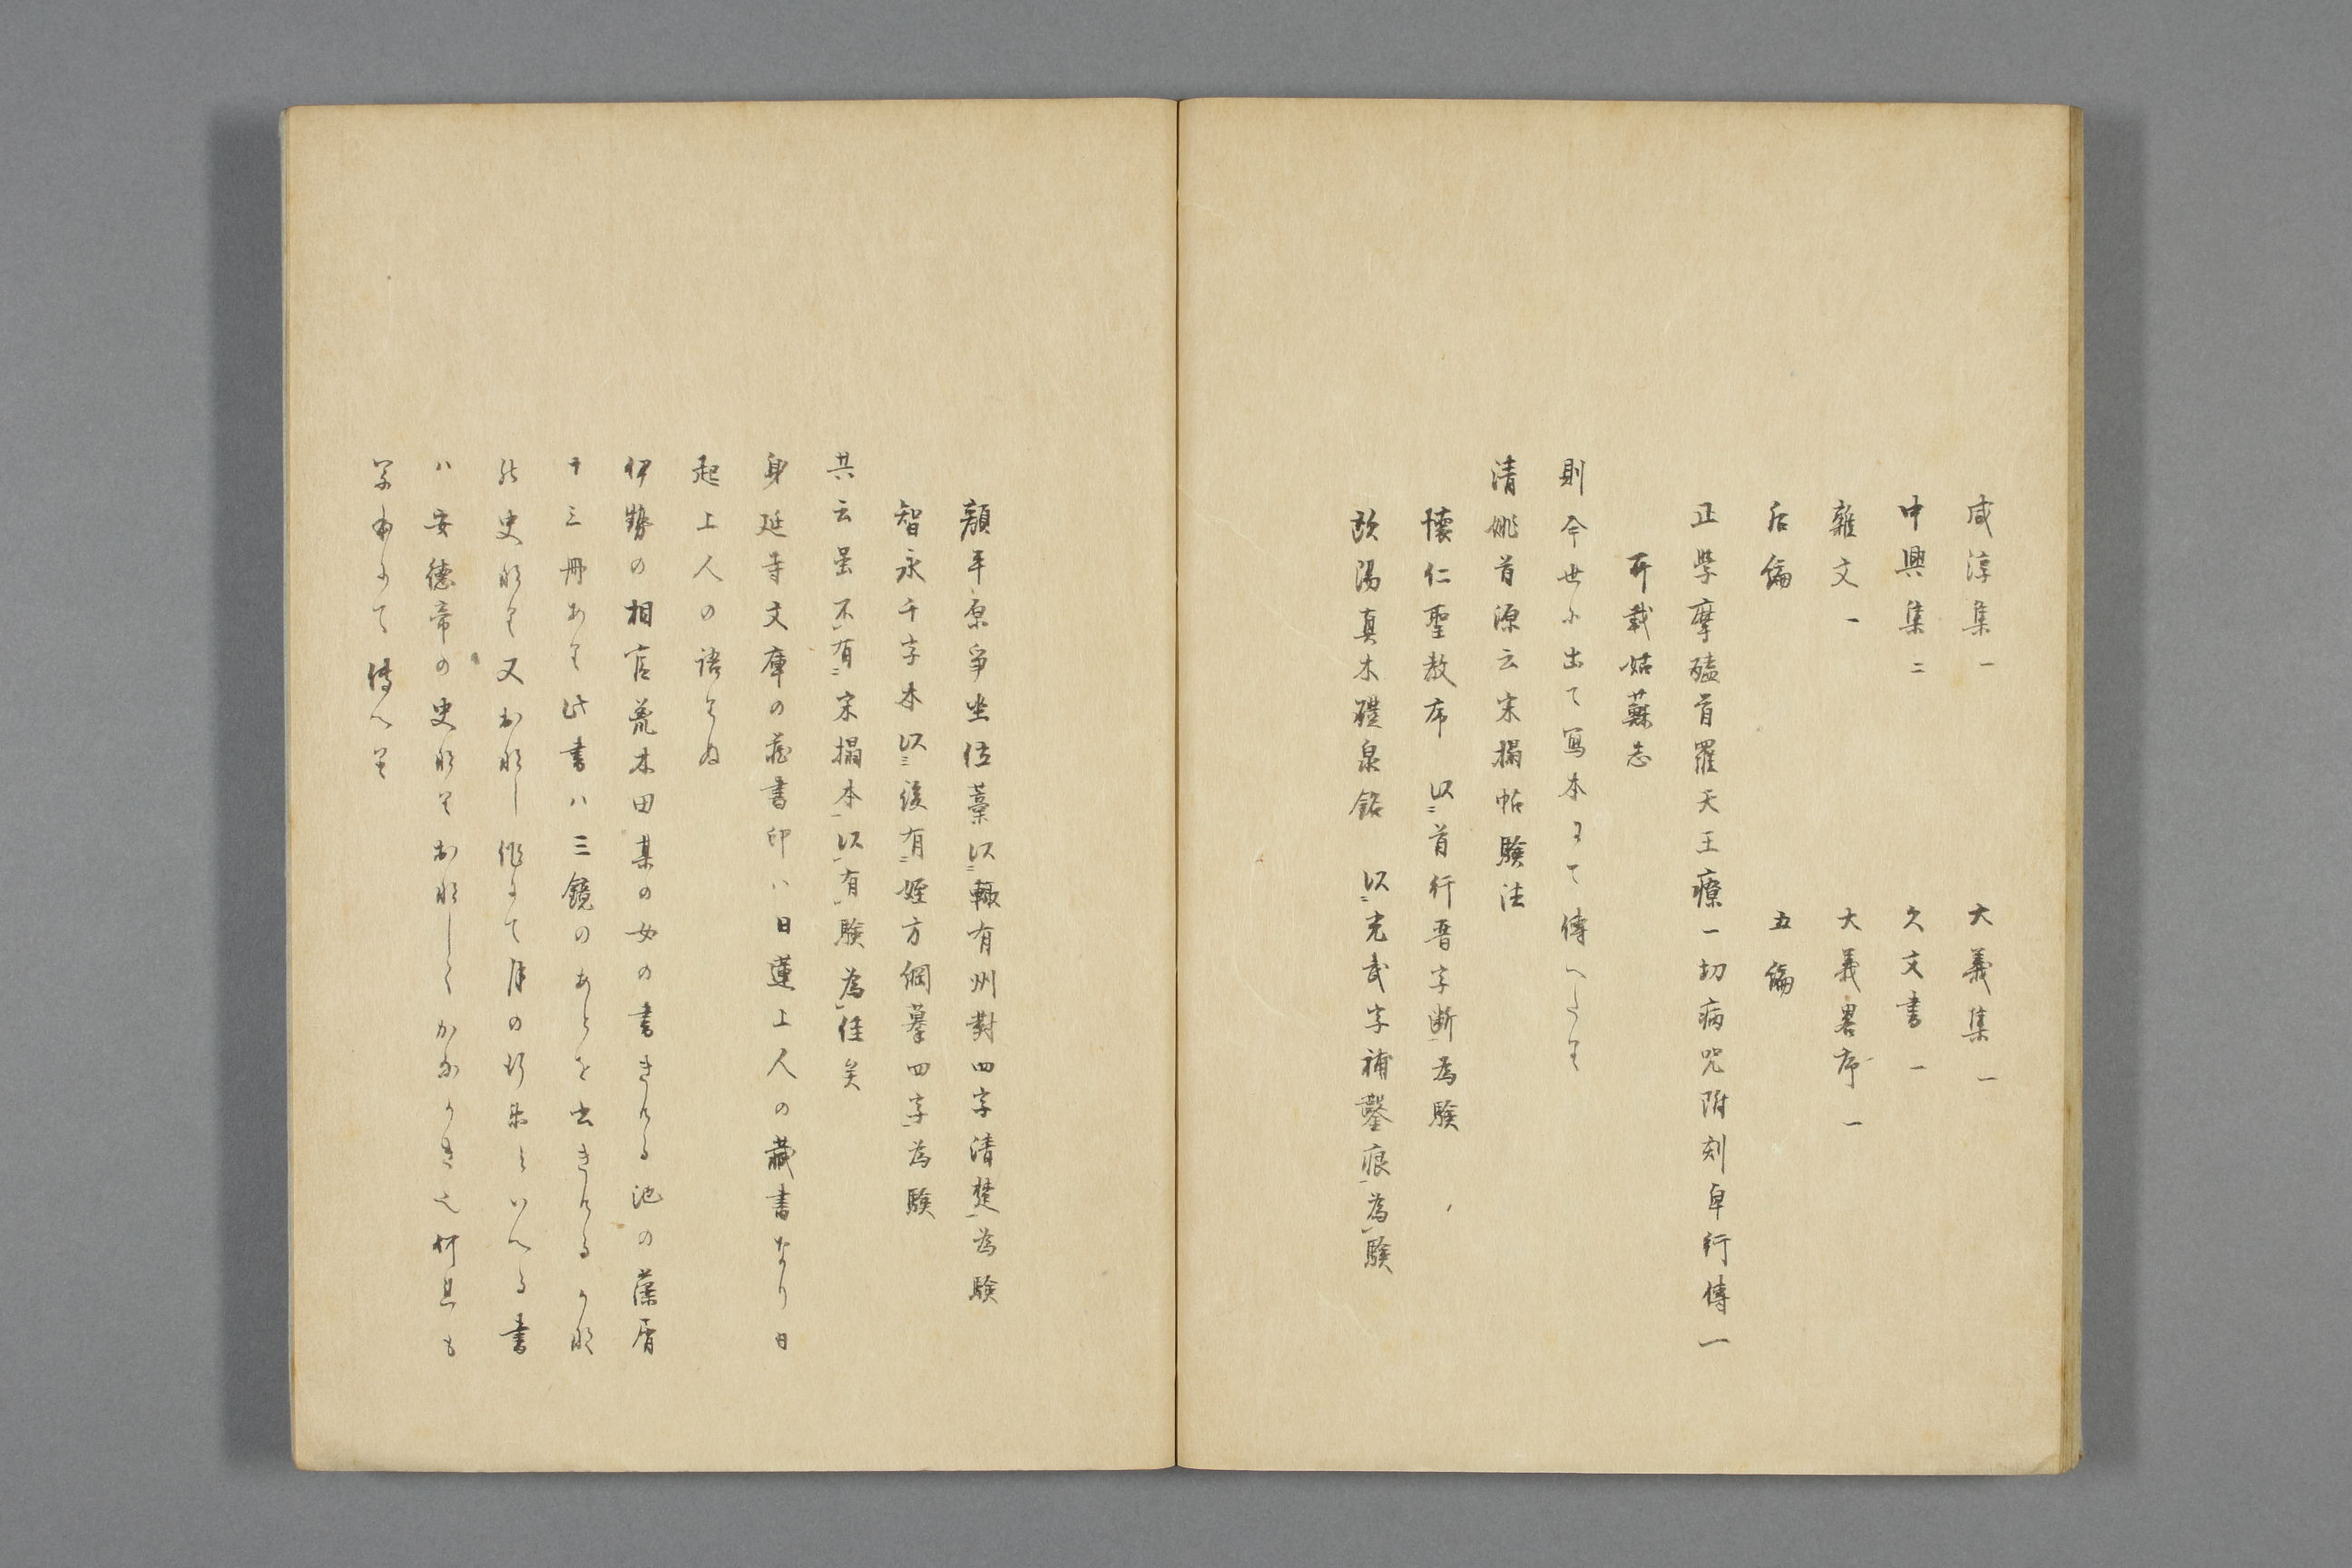 咸淳集一　大義集一
中興集二　久文書一
雜文一　大義畧序一
后編　五編
正學摩醯首羅天王療一切病咒附刻卓行傳一
所載姑蘇志
則今世に出て寫本にて傳へたり
清姚首源云宋搨帖驗法
懷仁聖教序　以首行晋字断為驗
欧陽真本醴泉銘　以光武字補鑿痕為驗
顏平原爭坐位藁以轍有州對四字清楚為驗
智永千字本以後有姪方綱摹四字為驗
共云虽不有宋搨本以有驗為佳矣
身延寺文庫の蔵書印ハ日蓮上人の蔵書なり日
起上人の語りぬ
伊勢の相官荒木田某の女の書きける池の藻屑
十三冊あり此書ハ三鏡のあとを書きける
史なり又おなし作にて月の行衛といへる書
ハ安徳帝の史なりおなしくかなかき也何且も
寫本にて傳へり